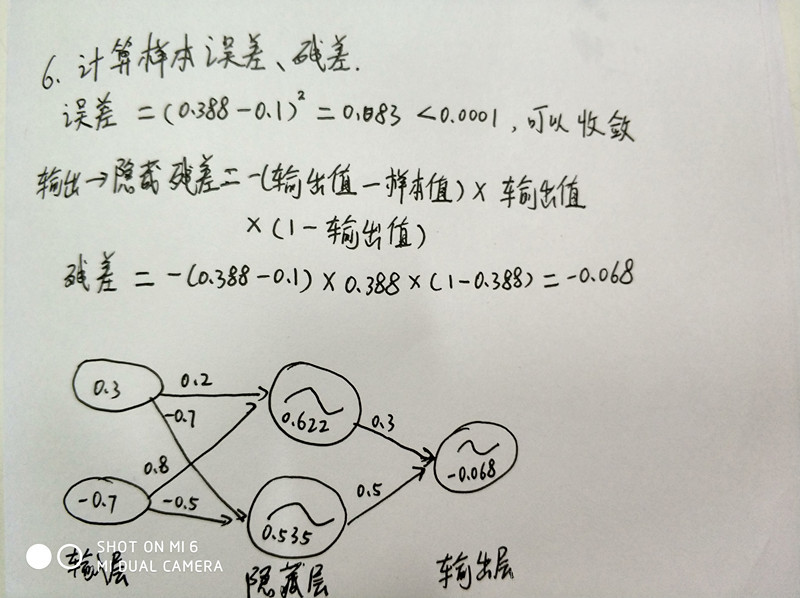 6. 计算样本误差、残差.
误差 = (0.388-0.1)² = 0.083 <0.0001, 可以收敛
输出→隐藏 残差=-(输出值-样本值) × 输出值
×(1-输出值)
残差 = -(0.388-0.1) × 0.388 × (1-0.388) = -0.068
0.3
0.2
-0.7
0.622
0.3
-0.068
0.8
-0.7
-0.5
0.535
0.5
输入层
隐藏层
输出层
SHOT ON MI 6
MI DUAL CAMERA